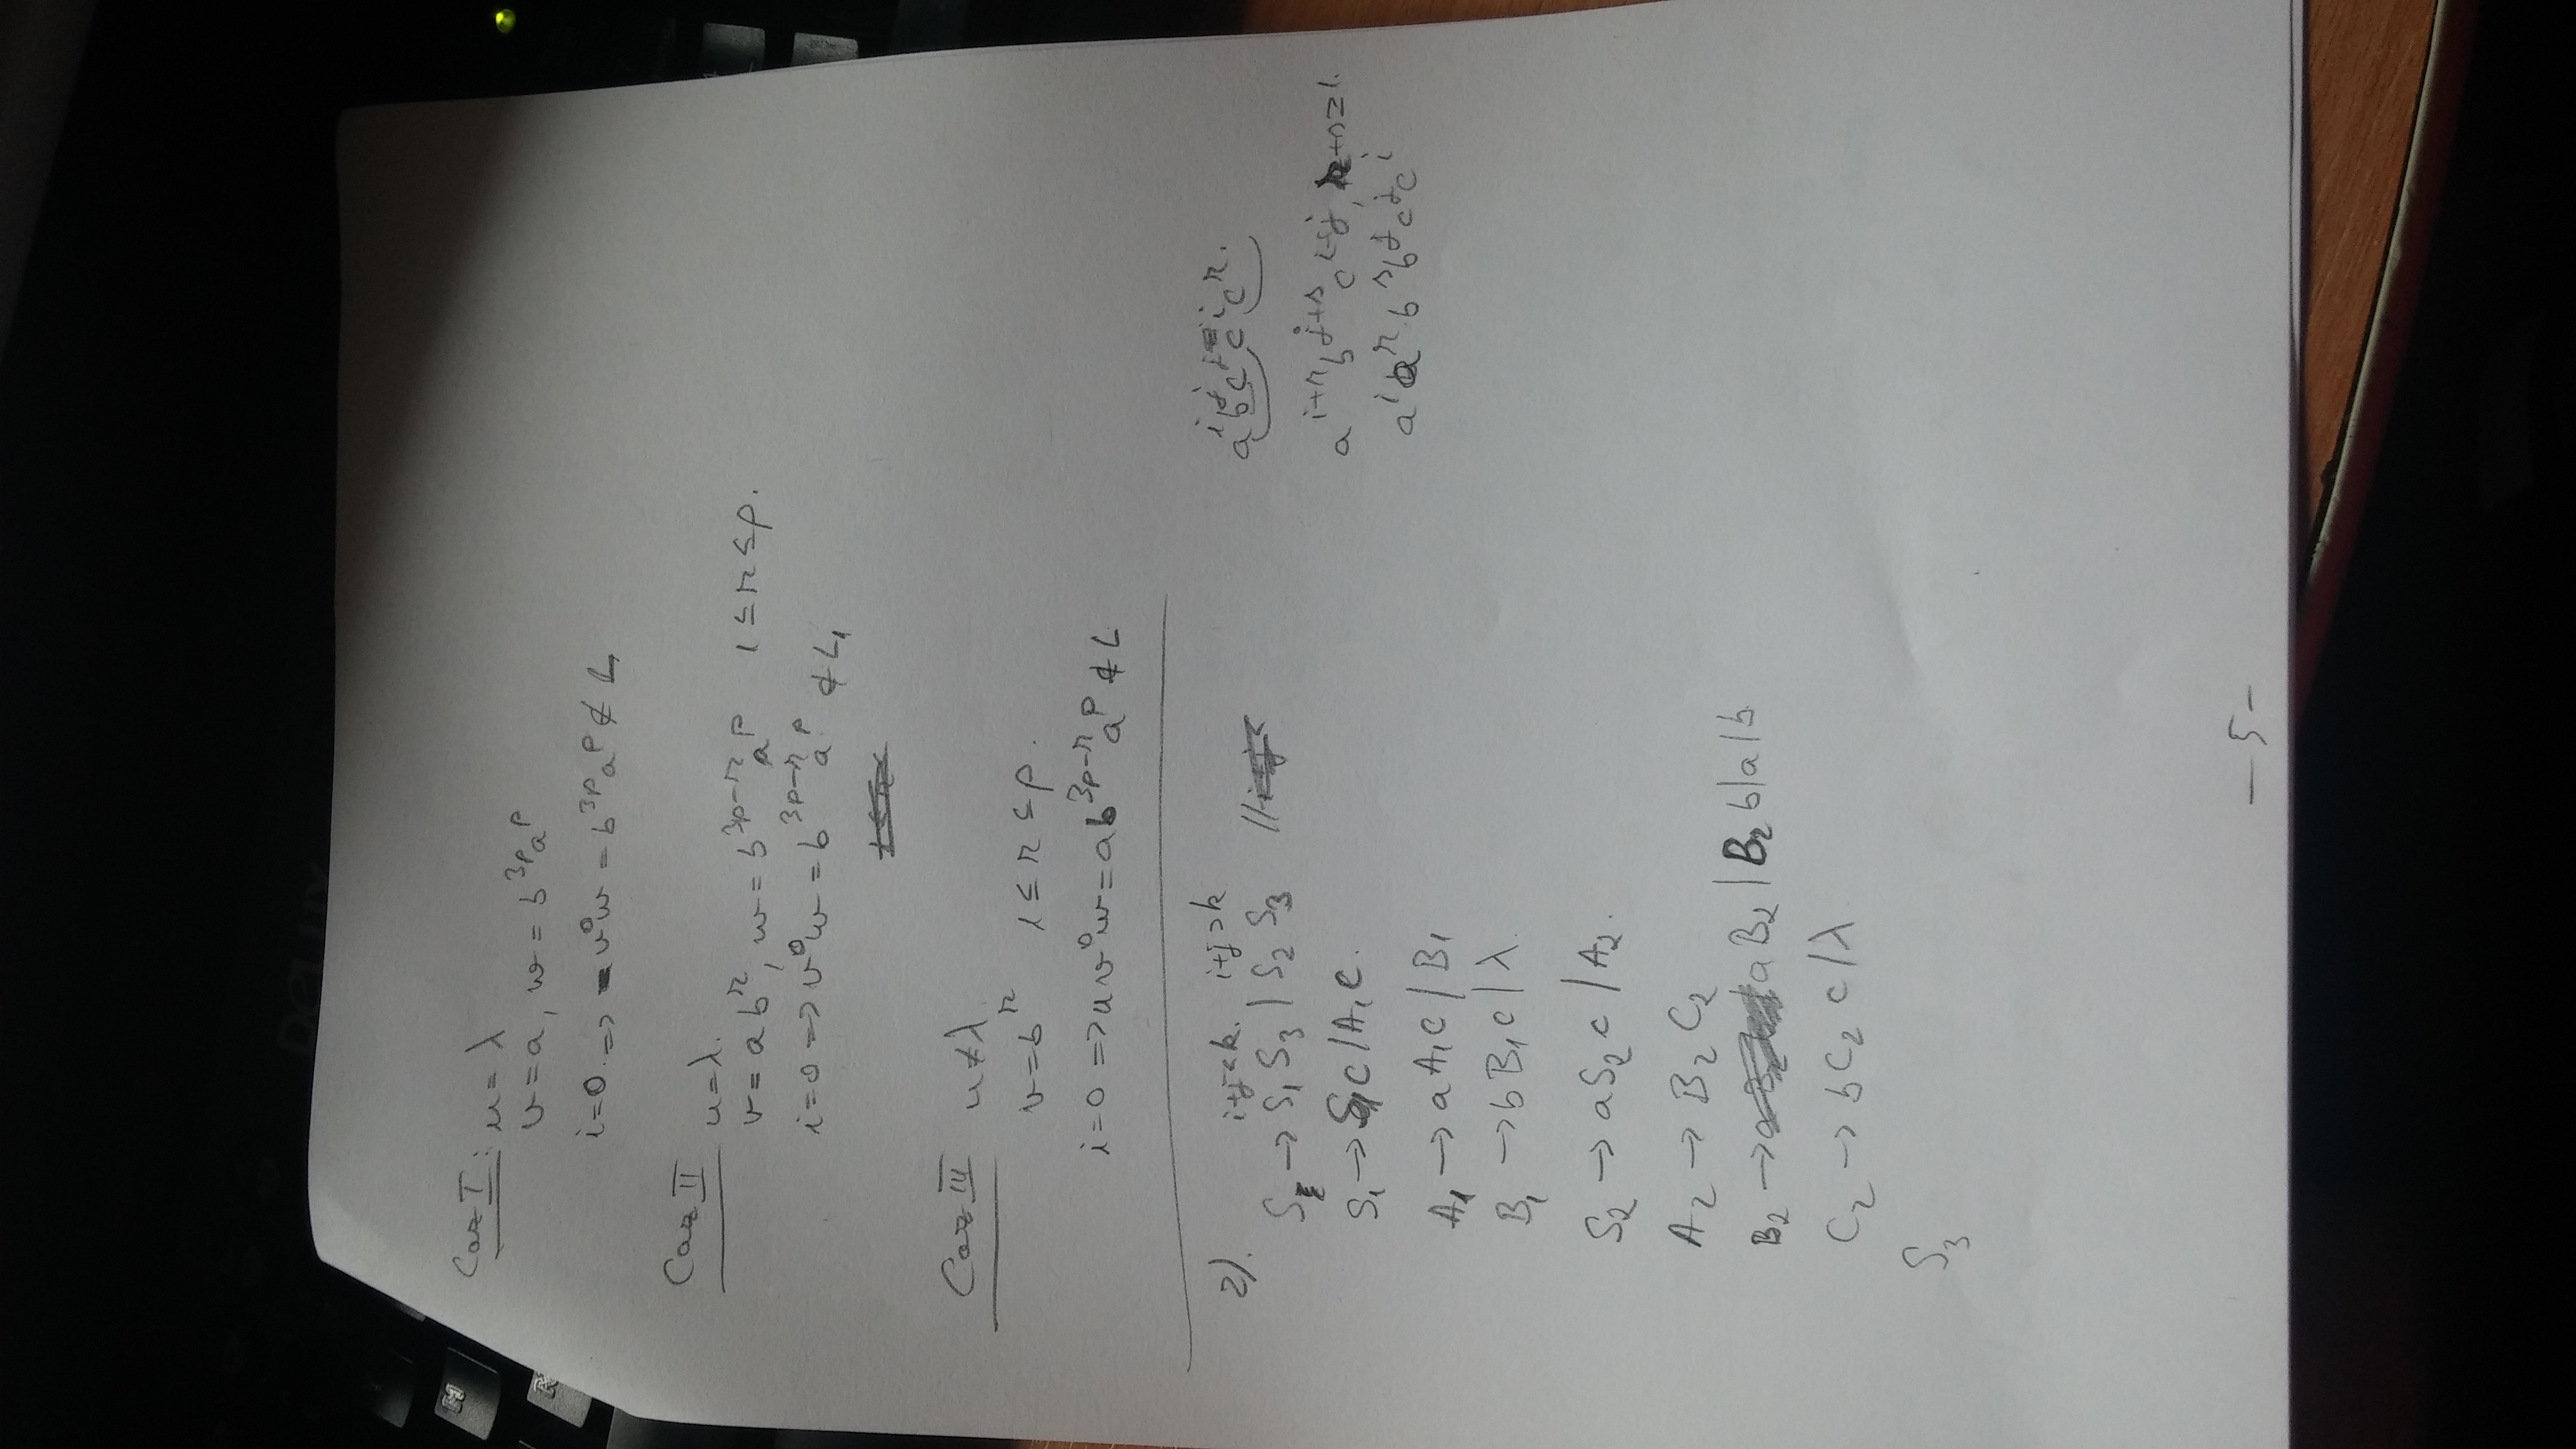 DELUX
Caz I: u = λ
v = a, w = b^{3p}a^p
i=0 => v^0w = b^{3p}a^p ∉ L
Caz II u=λ.
v = ab^r, w = b^{3p-r}a^p 1 ≤ r ≤ p.
i=0 => v^0w = b^{3p-r}a^p ∉ L_1
Caz III u≠λ.
v=b^r 1 ≤ r ≤ p.
i=0 => uv^0w = ab^{3p-r}a^p ∉ L
2). i+j<k. i+j>k
S → S_1 S_3 | S_2 S_3 //
S_1 → S_1c | A_1c.
A_1 → aA_1c | B_1
B_1 → bB_1c | λ.
S_2 → aS_2c | A_2.
A_2 → B_2 C_2
B_2 → aB_2 | B_2b | a | b
C_2 → bC_2c | λ
S_3
a^i b^j c^j c^i c^r.
a^{i+r} b^{j+s} c^{i+j}, r+s≥1.
a^i a^r b^s b^j c^j c^i
— 5 —